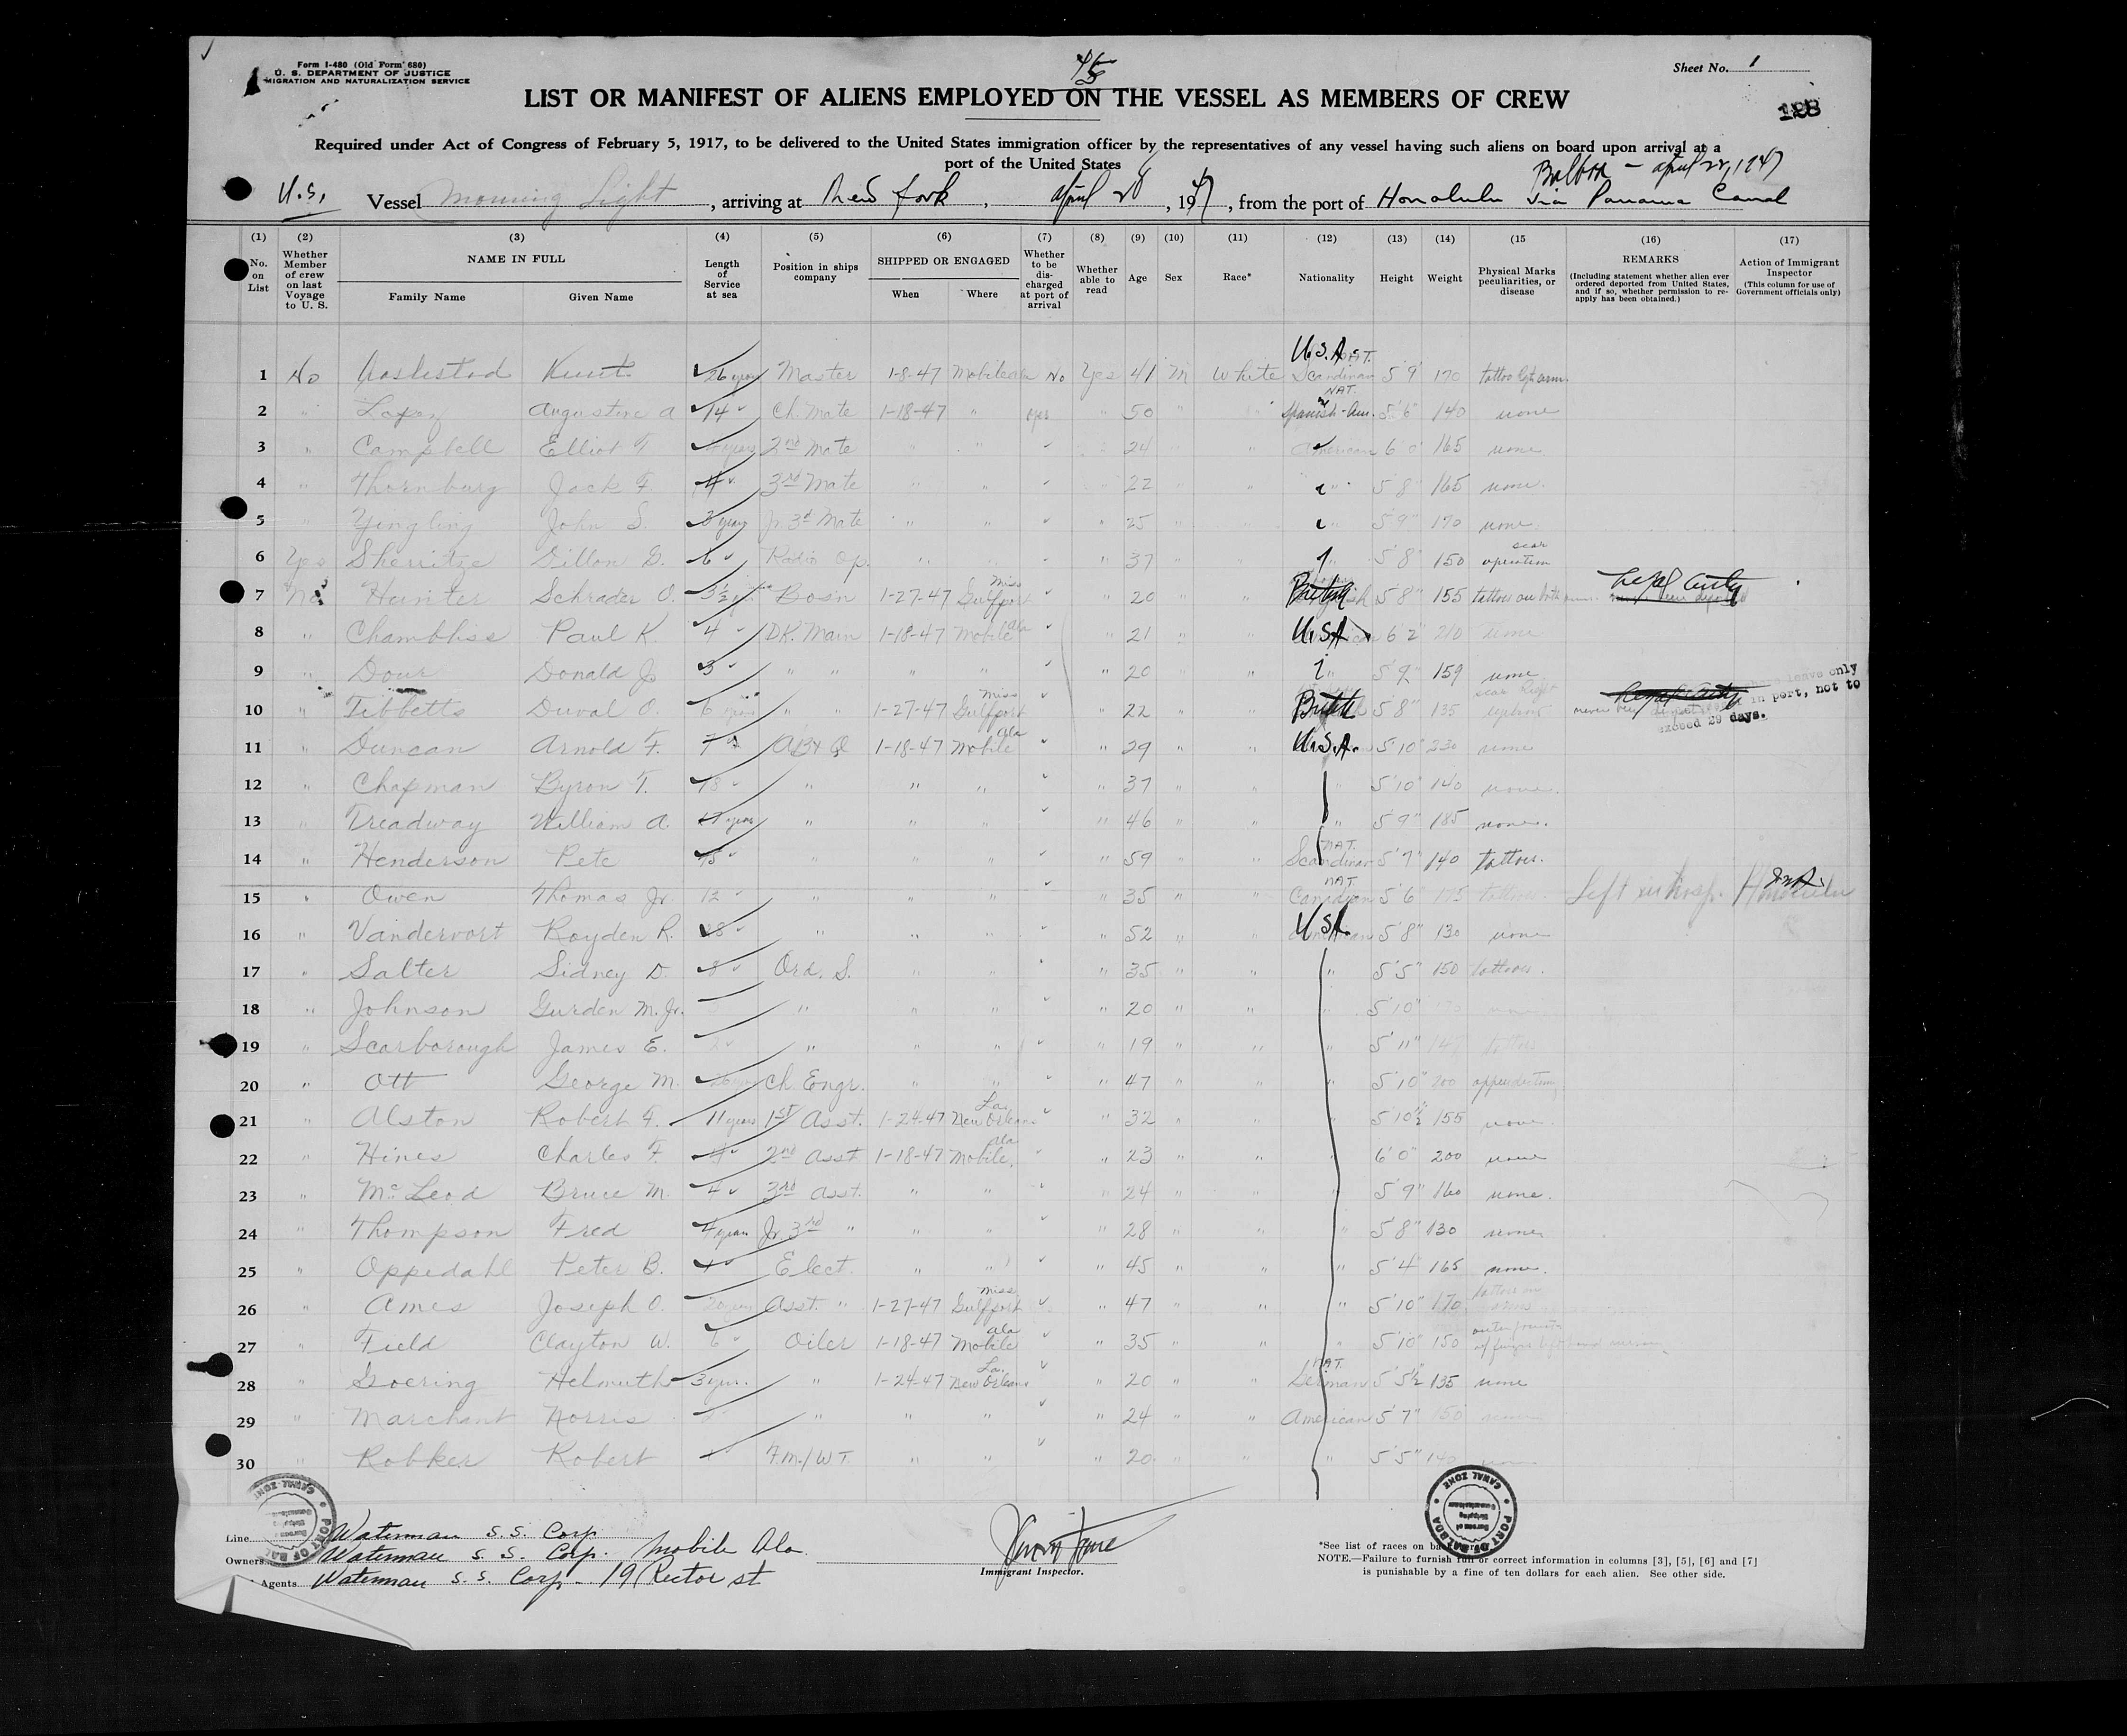 Form I-480 (Old Form 680)
U. S. DEPARTMENT OF JUSTICE
MIGRATION AND NATURALIZATION SERVICE
Sheet No. 1
LIST OR MANIFEST OF ALIENS EMPLOYED ON THE VESSEL AS MEMBERS OF CREW
Required under Act of Congress of February 5, 1917, to be delivered to the United States immigration officer by the representatives of any vessel having such aliens on board upon arrival at a
port of the United States
Balboa - April 22, 1947
U.S. Vessel Morning Light, arriving at New York, April 28, 1947, from the port of Honolulu via Panama Canal
(1) (2) (3) (4) (5) (6) (7) (8) (9) (10) (11) (12) (13) (14) (15 (16) (17)
No. on List
Whether Member of crew on last Voyage to U. S.
NAME IN FULL
Family Name Given Name
Length of Service at sea
Position in ships company
SHIPPED OR ENGAGED
When Where
Whether to be discharged at port of arrival
Whether able to read
Age
Sex
Race*
Nationality
Height
Weight
Physical Marks peculiarities, or disease
REMARKS
(Including statement whether alien ever ordered deported from United States, and if so, whether permission to re-apply has been obtained.)
Action of Immigrant Inspector
(This column for use of Government officials only)
U.S.A. NAT.
1 No Kurt 26 years Master 1-8-47 Mobile Ala No Yes 41 M White Scandinav 5'9" 170 tattoo
NAT.
2 " Lopez Augustine A 14 " Ch. Mate 1-18-47 " yes " 50 " " Spanish-Am. 5'6" 140 none
3 " Campbell Elliot F years 2nd Mate " " " 24 " American 6'0" 165 none
4 " Thornburg Jack F. 4 " 3rd Mate " " " 22 " " " 5'8" 165 none
5 " Yingling John S. 3 years Jr 3rd Mate " " " 25 " " 5'9" 170 none
6 Yes Sherritze Dillon G. 6 " Radio Op. " " " 37 " " 5'8" 150 scar operation
7 No Hunter Schrader O. 3½ Bosn 1-27-47 Gulfport Miss " 20 " " British 5'8" 155 tattoo on both arms
8 " Chambliss Paul K. 4 " DK. Main 1-18-47 Mobile Ala " 21 " " U.S.A. 6'2" 210 none
9 " Dour Donald J. 3 " " " " " " 20 " " 5'9" 159 none
10 " Tibbetts Duval O. 6 years " " 1-27-47 Gulfport Miss " 22 " " British 5'8" 135 scar Right
shore leave only in port, not to exceed 29 days.
11 " Duncan Arnold F. 7 " 1-18-47 Mobile Ala " 29 " " U.S.A. 5'10" 230 none
12 " Chapman Byron T. 18 " " " " " 37 " " 5'10" 140 none
13 " Treadway William A. years " " " " 46 " " " 5'9" 185 none.
NAT.
14 " Henderson Pete 15 " " " " " 59 " " Scandinav 5'7" 140 tattoos.
NAT.
15 " Owen Thomas Jr. 12 " " " " " 35 " " Canadian 5'6" 175 tattoos. Left in hosp. Honolulu
16 " Vandervort Royden R. 28 " " " " " 52 " " USA 5'8" 130 none
17 " Salter Sidney D. 8 " Ord. S. " " " 35 " " " 5'5" 150 tattoos.
18 " Johnson Gurden M. Jr. " " " " 20 " " " 5'10" none
19 " Scarborough James E. " " " " 19 " " " 5'11" tattoos
20 " Ott George M. Ch. Engr. " " " 47 " " " 5'10" 200 appendectomy
21 " Alston Robert F. 11 years 1st Asst. 1-24-47 New Orleans La. " 32 " " 5'10½" 155 none.
22 " Hines Charles F. 2nd Asst 1-18-47 Mobile, Ala " 23 " " " 6'0" 200 none
23 " McLeod Bruce M. 4 " 3rd Asst. " " " 24 " " " 5'9" 160 none.
24 " Thompson Fred 4 years Jr. 3rd " " " " 28 " " " 5'8" 130 none
25 " Oppedahl Peter B. Elect. " " " 45 " " " 5'4" 165 none.
26 " Ames Joseph O. 20 years Asst. " 1-27-47 Gulfport Miss " 47 " " " 5'10" 170 tattoos on arms
27 " Field Clayton W. 6 " Oiler 1-18-47 Mobile Ala " 35 " " " 5'10" 150
NAT.
28 " Goering Helmuth 3 years. " 1-24-47 New Orleans La. " 20 " " German 5'5½" 135 none
29 " Marchant Norris " " " " 24 " " American 5'7" 150
30 " Robker Robert F.M./W.T. " " " 20 " " " 5'5" 140
Line Waterman S.S. Corp
Owners Waterman S.S. Corp. Mobile Ala.
Agents Waterman S.S. Corp - 19 Rector St
Immigrant Inspector.
PORT OF BALBOA
CANAL ZONE
*See list of races on back
NOTE.—Failure to furnish full or correct information in columns [3], [5], [6] and [7]
is punishable by a fine of ten dollars for each alien. See other side.